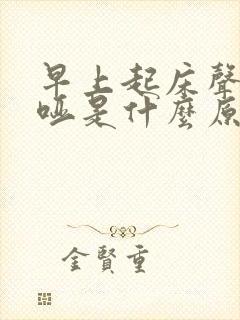 早上起床聲
啞是什麼原
金賢重